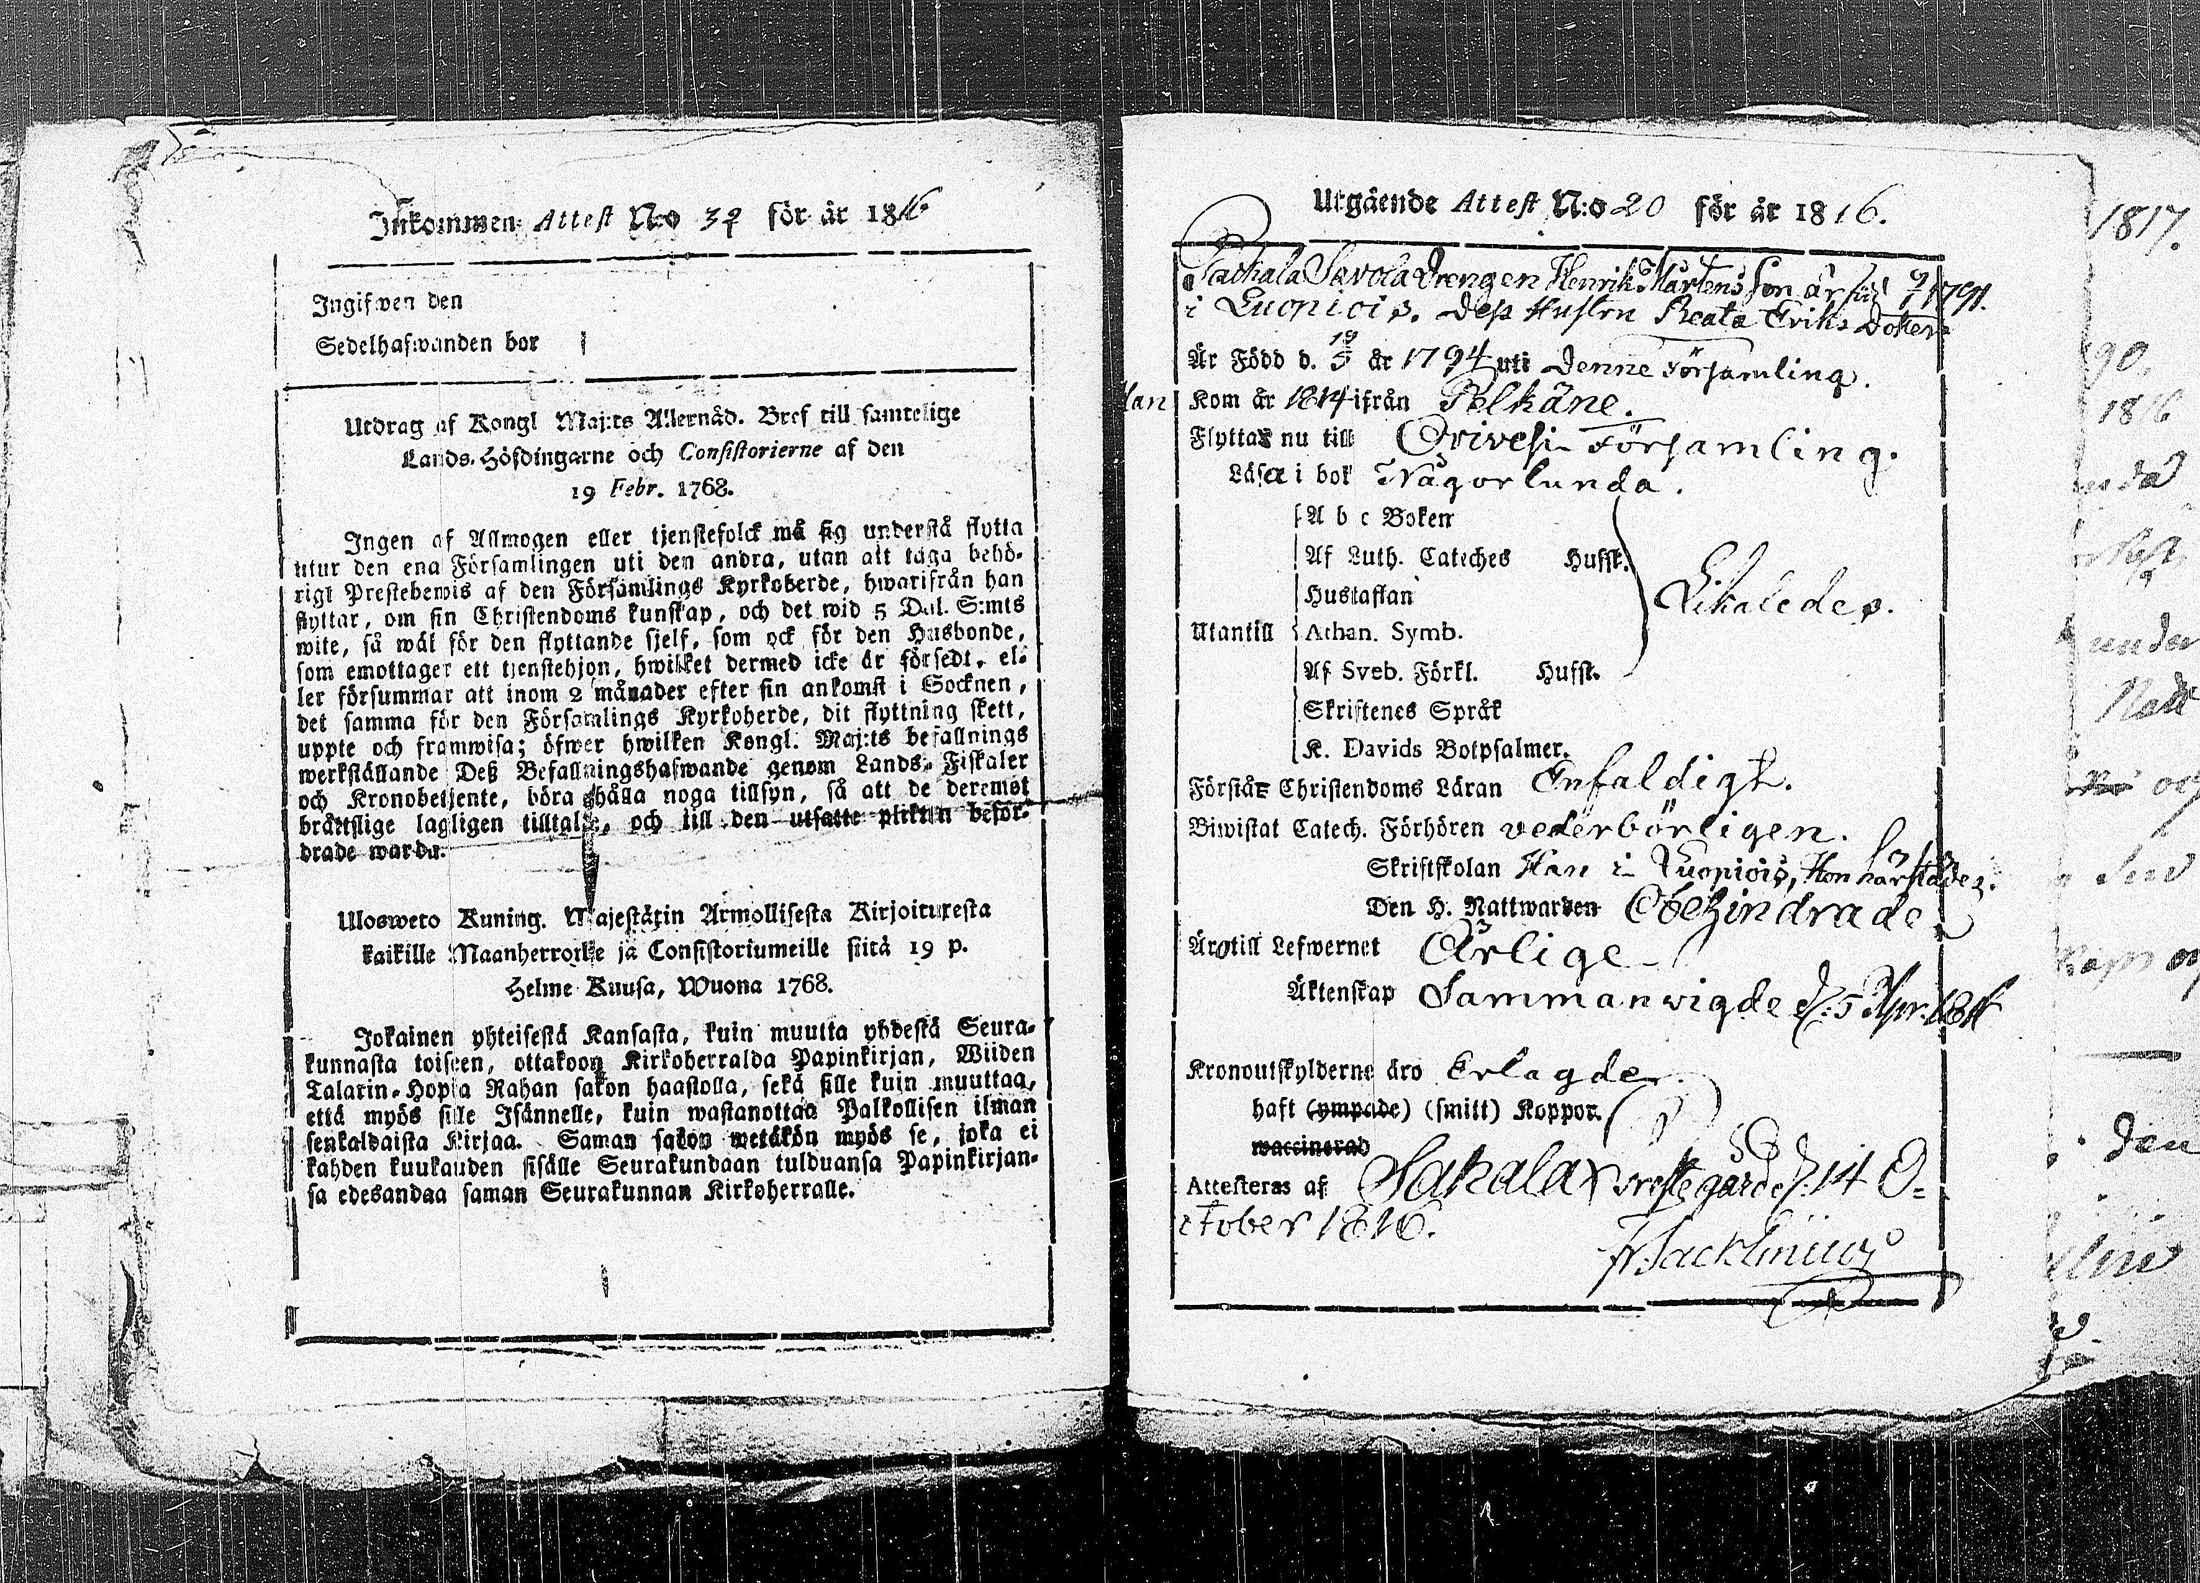 Inkommen Attest N:o 32 för år 1816
Ingifwen den
Sedelhafwanden bor
Utdrag af Kongl Maj:ts Allernåd. Bref till samtelige
Lands-Höfdingarne och Consistorierne af den
19 Febr. 1768.
Ingen af Allmogen eller tjenstefolck må sig understå flytta
utur den ena Församlingen uti den andra, utan att taga behö-
rigt Prestebewis af den Församlings Kyrkoherde, hwarifrån han
flyttar, om sin Christendoms kunskap, och det wid 5 Dal. S:mts
wite, så wäl för den flyttande sjelf, som ock för den Husbonde,
som emottager ett tjenstehjon, hwilket dermed icke är försedt, el-
ler försummar att inom 2 månader efter sin ankomst i Socknen,
det samma för den Församlings Kyrkoherde, dit flyttning skett,
uppte och framwisa; öfwer hwilken Kongl. Maj:ts befallnings
werkställande Deß Befallningshafwande genom Lands-Fiskaler
och Kronobetjente, böra hålla noga tillsyn, så att de deremot
bråttslige lagligen tilltalas, och till den utsatte plikten beför-
drade warda.
Ulosweto Kuning. Majestätin Armollisesta Kirjoituxesta
kaikille Maanherroille ja Consistoriumeille siitä 19 p.
Helme Kuusa, Wuona 1768.
Jokainen yhteisestä Kansasta, kuin muutta yhdestä Seura-
kunnasta toiseen, ottakoon Kirkoherralda Papinkirjan, Wiiden
Talarin-Hopia Rahan sakon haastolla, sekä sille kuin muuttaa,
että myös sille Isännelle, kuin wastanottaa Palkollisen ilman
senkaldaista Kirjaa. Saman sakon wetäkön myös se, joka ei
kahden kuukauden sisälle Seurakundaan tulduansa Papinkirjan-
sa edesandaa saman Seurakunnan Kirkoherralle.
Utgående Attest N:o 20 för år 1816.
Savola Drengen Henrik Mårtens Son är född 1791.
i Luopiois. Dess Hustru Beata Eriks Dotter
Är Född d. 19/5 år 1794 uti Denne Församling.
Han Kom år 1814 ifrån Pelkäne.
Flyttar nu till Orivesi Församling.
Läsa i bok Någorlunda.
A b c Boken
Af Luth. Cateches Hufst.
Hustaflan
Utantill Athan. Symb. Likaledes.
Af Sveb. Förkl. Hufst.
Skriftenes Språk
K. Davids Botpsalmer.
Förstår Christendoms Läran Enfaldigt.
Biwistat Catech. Förhören vederbörligen.
Skriftskolan Han i Luopiois, Hon härstädes.
Den H. Nattwarden Obehindrade
Äro till Lefwernet Ärlige
Äktenskap Sammanvigde d. 5 Apr. 1814
Kronoutskylderne äro Erlagde.
haft (ympade) (smitt) Koppor.
waccinerad
Attesteras af Sahalax Prestegård d. 14 O-
ctober 1816.
1817.
90,
1816
under
och
den